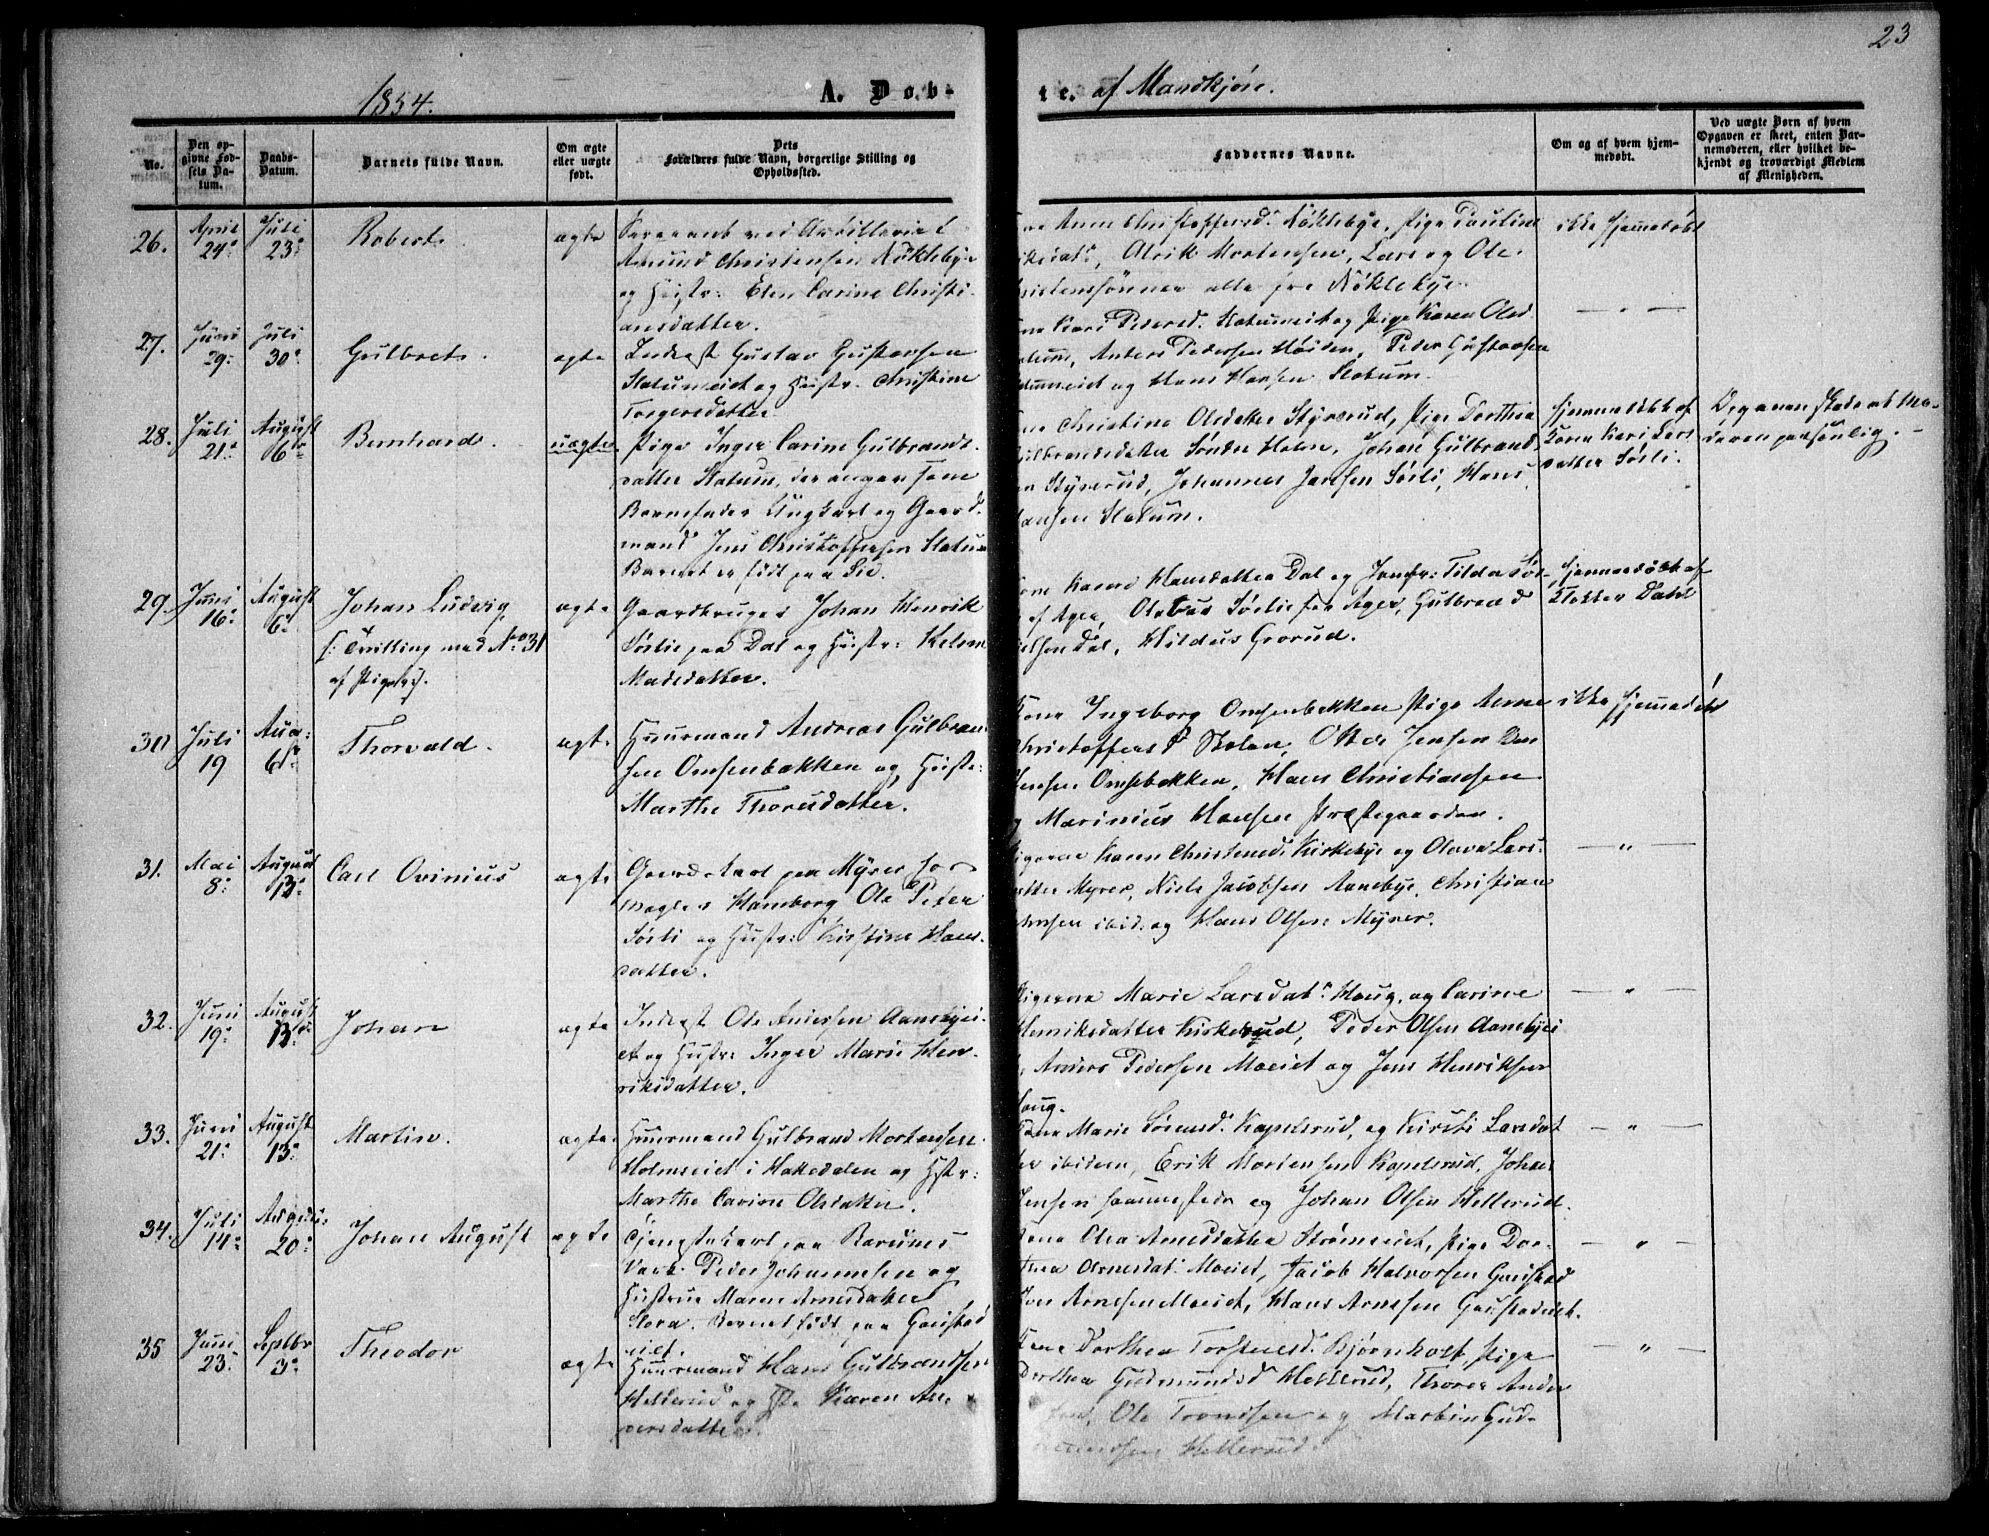 23
1854.
A. Døb-
te. af Mandkjøn.
No.
Den op-
givne Fød-
sels Da-
tum.
Daabs-
Datum.
Barnets fulde Navn.
Om ægte
eller uægte
født.
Dets
Forældres fulde Navn, borgerlige Stilling og
Opholdssted.
Faddernes Navne.
Om og af hvem hjem-
medøbt.
Ved uægte Børn af hvem
Opgaven er skeet, enten Bar-
nemoderen, eller hvilket be-
kjendt og troværdigt Medlem
af Menigheden.
26.
April
24:
Juli
23:
Robert.
ægte
Sergeant ved Artilleriet
Amund Christensen Nöklebye
og Hustr: Elen Carine Christi-
ansdatter.
Anne Christoffersd: Nöklebye, Pige Pauline
Alrik Mortensen, Lars og Ole
alle fra Nöklebye.
ikke hjemmedøbt
27.
Juni
29:
Juli
30:
Gulbrand.
ægte
Inderst Gustav Gustavsen
Slatumeiet og Hustr. Christine
Torgersdatter
Kari Pedersd. Slatumeiet og Pige Karen Olsd.
Anders Pedersen Høiden, Peder Gustavsen
og Hans Hansen Slatum.
— " —
28.
Juli
21:
August
6te
Bernhard.
uægte
Pige Inger Carine Gulbrands-
datter Slatum, der angav som
Barnefader Ungkarl og Gaard-
mand Jens Christoffersen Slatum
Barnet er født paa Lie.
Christine Olsdatter Styrerud, Pige Dorthea
Gulbrandsdatter Søndre Holm, Johan Gulbrand-
Styrerud, Johannes Jansen Sørli, Hans
Hansen Slatum.
hjemmedøbt af
Kone Kari Lars-
datter Sørli.
Opgaven skede af Mo-
deren personlig. —
29.
Juni
16:
August
6:
Johan Ludvig
(: Tvilling med No 31
af Pigerne:).
ægte
Gaardbruger Johan Henrik
Sørlie paa Dal og Hustr: Helene
Madsdatter.
Karen Hansdatter Dal og Jomfr: Tilda Sør-
af Ager, Olabus Sørlie fra Ager, Gulbrand
Dal, Hildus Grorud.
hjemmedøbt af
Klokker Dahl
30
Juli
19
Aug:
6te
Thorvald.
ægt.
Huusmand Andreas Gulbran-
sen Omsenbækken og Hustr:
Marthe Thorsdatter.
Kone Ingeborg Omsenbækken Pige Anne
Christoffersd Skolen, Otter Jensen
Jensen Omsebækken, Hans Christiansen
og Marinius Hansen Præstegaarden.
ikke hjemmedøbt
31.
Mai
8:
August
13:
Carl Ovinius
ægte
Gaardskarl paa Myrer hos
Hamborg Ole Peter
Sørli og Hustr: Kirstine Hans-
datter.
Pigerne Karen Christensd: Kirkebye og Olava Lars-
datter Myrer, Niels Jacobsen Aanebye, Christian
Jensen ibid: og Hans Olsen Myrer.
— " —
32.
Juni
19:
August
13:
Johan
ægte
Inderst Ole Andersen Aanebyei-
et og Hustr: Inger Marie Hen-
riksdatter.
Pigerne Marie Larsdatr Haug, og Carine
Henriksdatter Kirkerud, Peder Olsen Aanebyei
Anders Pedersen Moeiet og Jens Henriksen
Haug.
— " —
33.
Juni
21:
August
13:
Martin.
ægte
Huusmand Gulbrand Mortensen
Holmseiet i Hakedalen og Hstr:
Marthe Carine Olsdatter.
Kone Marie Sørensd: Kapelsrud, og Kirsti Larsdat
ter ibidem, Erik Mortensen Kapelsrud, Johan
Jensen sammesteds og Johan Olsen Hellerud.
— " —
34.
Juli
14:
August
20:
Johan August
ægte
Tjenestekarl paa Bærums
Værk Peder Johannesen og
Hustrue Maren Arnesdatter
Slora. Barnet født paa Gaustad
eiet.
Kone Olea Arnesdatter Strømseiet, Pige Dor-
thea Arnesdat: Moeiet, Jacob Halvorsen Gaustad
Arnesen Moeiet, Hans Arnesen Gaustadeiet.
— " —
35
Juni
23.
Septbr
3:
Theodor
ægte
Huusmand Hans Gulbrandsen
Hellerud og Hst. Karen An-
dersdatter.
Kone Dorthea Torstensd. Bjørnholt, Pige
Dorthea Gudmundsd Hellerud, Thorer Ander
Ole Trondsen og Martin Gud-
mundsen Hellerud.
— " —